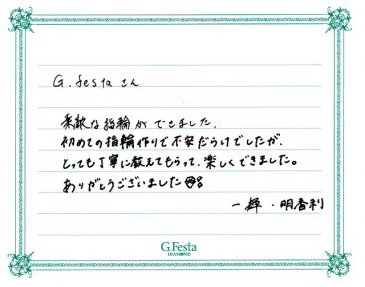 G.festaさん
素敵な指輪ができました。
初めての指輪作りで不安だらけでしたが、
とっても丁寧に教えてもらって、楽しくできました。
ありがとうございました
一輝・明香利
G.Festa
DIAMOND